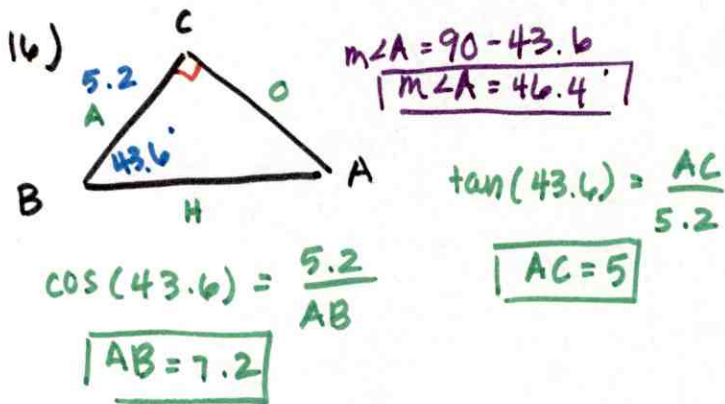 16)
C
5.2
A
O
43.6°
B
H
A
m∠A = 90 - 43.6
m∠A = 46.4°
tan(43.6) = AC / 5.2
AC = 5
cos(43.6) = 5.2 / AB
AB = 7.2